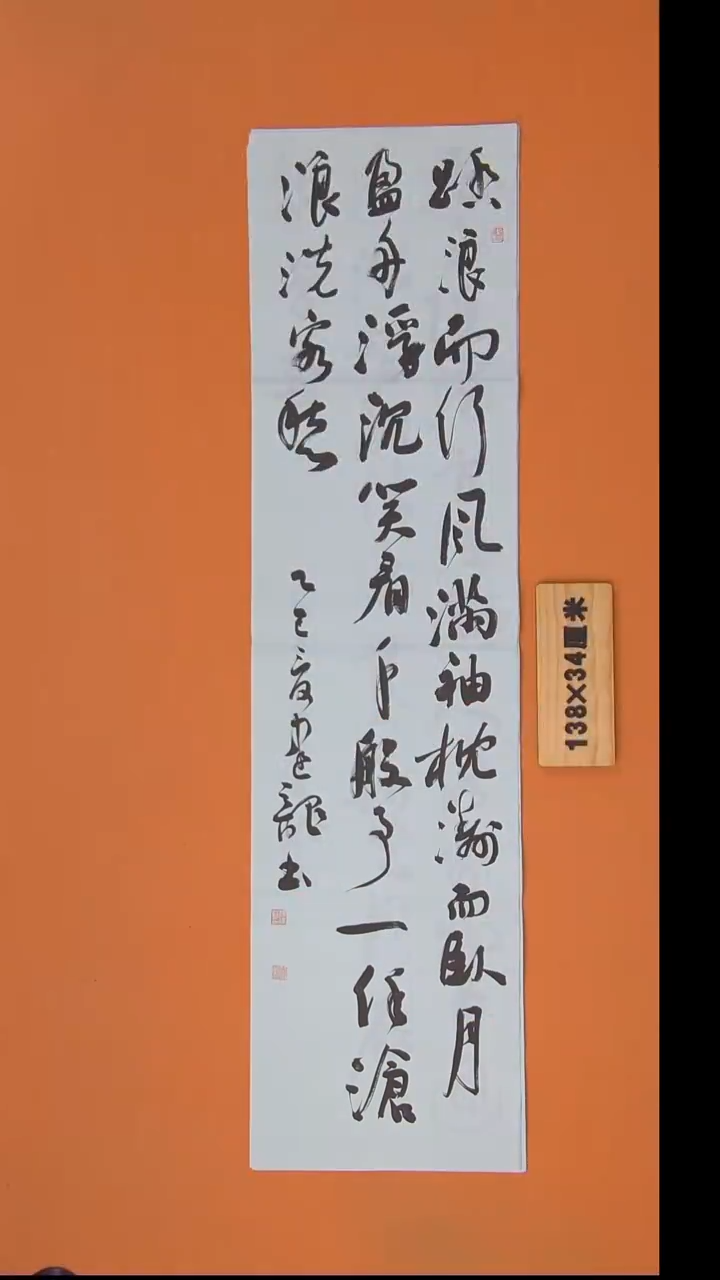 踏浪而行风满袖枕濤而臥月
盈舟浮沉笑看千般事一任滄
浪洗客愁
乙巳夏建龍书
138×34厘米